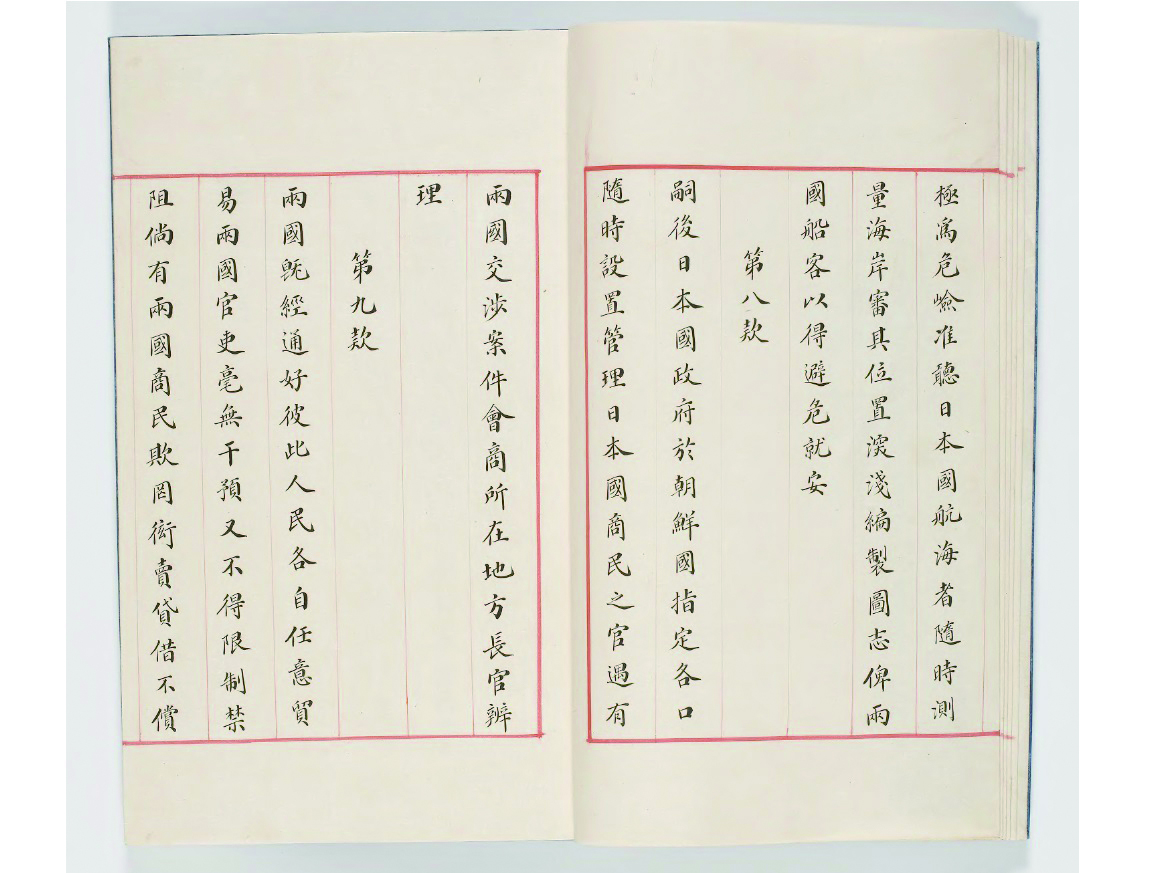 極爲危嶮准聽日本國航海者隨時測
量海岸審其位置深淺編製圖志俾兩
國船客以得避危就安
第八款
嗣後日本國政府於朝鮮國指定各口
隨時設置管理日本國商民之官遇有
兩國交涉案件會商所在地方長官辨
理
第九款
兩國旣經通好彼此人民各自任意貿
易兩國官吏毫無干預又不得限制禁
阻倘有兩國商民欺罔衒賣貸借不償